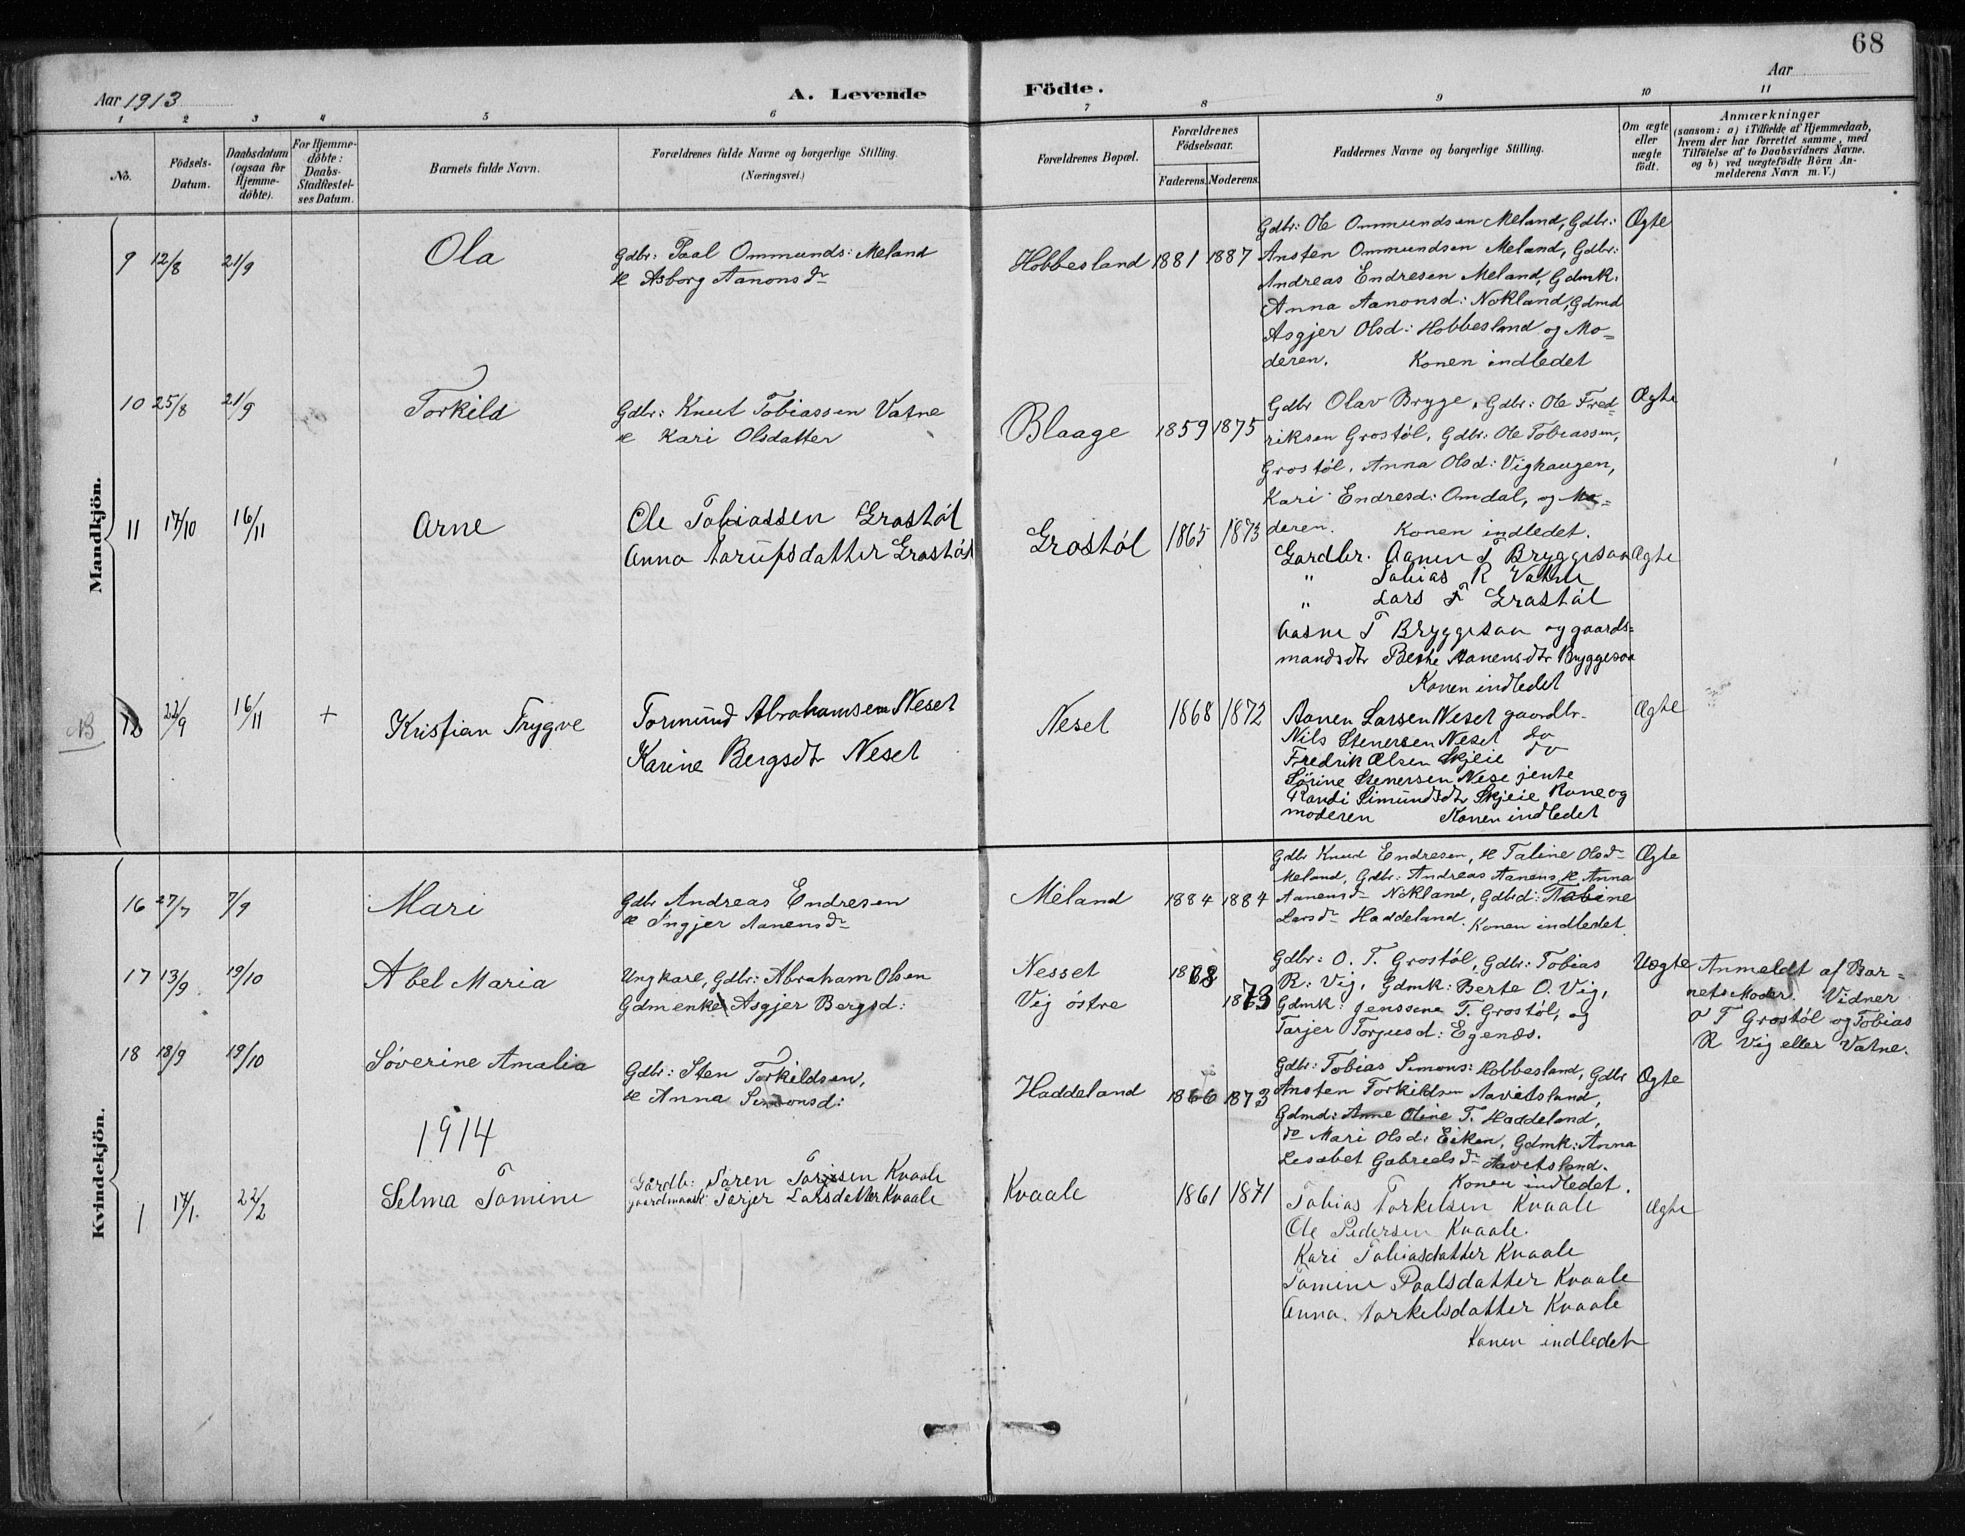 68
Aar 1913
A. Levende
Födte.
Aar
1 2 3 4 5 6 7 8 9 10 11
No.
Födsels-
Datum.
Daabsdatum
(ogsaa for
Hjemme-
döbte).
For Hjemme-
döbte:
Daabs-
Stadfæstel-
ses Datum.
Barnets fulde Navn.
Forældrenes fulde Navne og borgerlige Stilling.
(Næringsvei.)
Forældrenes Bopæl.
Forældrenes
Födselsaar.
Faderens. Moderens.
Faddernes Navne og borgerlige Stilling.
Om ægte
eller
uægte
födt.
Anmærkninger
(saasom: a) i Tilfælde af Hjemmedaab,
hvem der har forrettet samme, med
Tilföielse af to Daabsvidners Navne.
og b) ved uægtefödte Börn An-
melderens Navn m. V.)
Mandkjön.
9 12/8 21/9
Ola
Gdbr: Paal Ommunds: Meland
& Asborg Aanonsdr
Hobbesland 1881 1887
Gdbr: Ole Ommundsen Meland, Gdbr:
Ansten Ommundsen Meland, Gdbr:
Andreas Endresen Meland, Gdmk:
Anna Aanonsd: Nokland, Gdmd
Asgjer Olsd: Hobbesland og Mo=
deren. Konen indledet
Ægte
10 25/8 21/9
Torkild
Gdbr: Knut Tobiassen Vatne
& Kari Olsdatter
Blaage 1859 1875
Gdbr Olav Bryge, Gdbr: Ole Fred=
riksen Grostöl, Gdbr: Ole Tobiassen,
Grostöl, Anna Olsd: Vighaugen,
Kari Endresd: Omdal, og Mo=
deren. Konen indledet.
Ægte
11 17/10 16/11
Arne
Ole Tobiassen Grostöl
Anna Aarupsdatter Grostöl
Grostöl 1865 1873
Gardbr. Aanen T Bryggesaa
" Tobias R Vatne
" Lars F Grostöl
Aasne T Bryggesaa og gaards=
mandsdtr Berte Aanensdtr Bryggesaa
Konen indledet
Ægte
NB 12 22/9 16/11 +
Kristian Trygve
Tormund Abrahamsen Neset
Karine Bergsdtr Neset
Neset 1868 1872
Aanen Larsen Neset gaardbr.
Nils Stenersen Neset do
Fredrik Olsen Skjeie do
Sörine Stenersen Nese jente
Randi Simundsdtr Skjeie Kone og
moderen Konen indledet
Ægte
Kvindekjön.
16 27/7 7/9
Mari
Gdbr Andreas Endresen
& Ingjer Aanensdr
Meland 1884 1884
Gdbr Knud Endresen, & Taline Olsdr
Meland, Gdbr: Andreas Aanens, & Anna
Aanensdr Nokland, Gdbd: Tabine
Larsdr Haddeland. Konen indledet.
Ægte
17 13/9 19/10
Abel Maria
Ungkarl, Gdbr: Abraham Olsen
Gdmenke Asgjer Bergsd:
Nesset
Vig östre
1873
Gdbr: O. T. Grostöl, Gdbr: Tobias
R: Vig, Gdmk: Berte O. Vig,
Gdmk: Jenssene T. Grostöl, og
Tarjer Torjusd: Egenæs.
Uægte
Anmeldt af Bar=
nets Moder. Vidner
O T Grostöl og Tobias
R Vig eller Vatne.
18 18/9 19/10
Söverine Amalia
Gdbr: Sten Torkildsen,
& Anna Simonsd:
Haddeland 1866 1873
Gdbr: Tobias Simons: Hobbesland, Gdbr
Ansten Torkildsen Aavitsland,
Gdmd: Anne Oline T. Haddeland,
do Mari Olsd: Eiken, Gdmk: Anna
Lesabet Gabrielsdr Aavitsland.
Konen indledet.
Ægte
1914
1 17/1. 22/2
Selma Tomine
Gardb: Sören Torjesen Kvaale
gaardmands: Tarjer Larsdatter Kvaale
Kvaale 1861 1871
Tobias Torkelsen Kvaale
Ole Pedersen Kvaale.
Kari Tobiasdatter Kvaale
Tomine Paalsdatter Kvaale
Anna. Torkelsdatter Kvaale
Konen indledet
Ægte